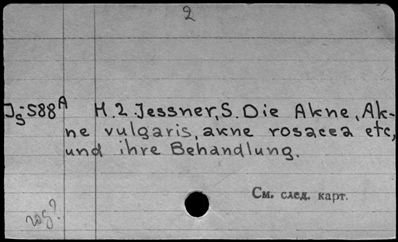 2
Js-588A H.2. Jessner, S. Die Akne, Ak-
ne vulgaris, akne rosacea etc,
und ihre Behandlung.
См. след. карт.